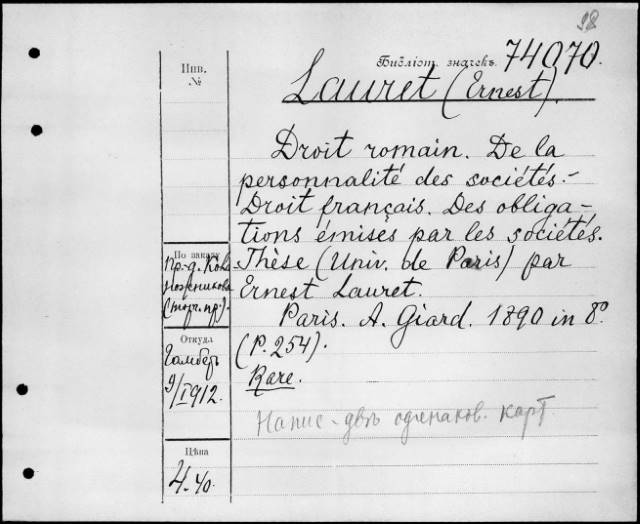 98
Библіот. значекъ. 74070.
Инв.
№
Lauret (Ernest).
Droit romain. De la
personnalité des sociétés.-
Droit français. Des obliga-
tions émises par les sociétés.
Thèse (Univ. de Paris) par
Ernest Lauret.
Paris. A. Giard. 1890 in 8º
(P. 254).
Rare.
Напис. двѣ одинаков. карт
По заказу
пр-д. Кож
(торг. пр.).
Откуда
Гамбер
9/I 1912.
Цѣна
4.40.